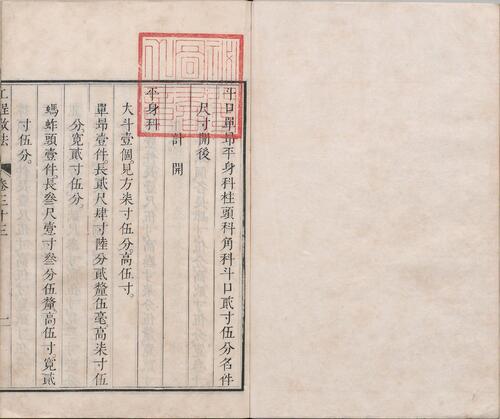 斗口單昂平身科柱頭科角科斗口貳寸伍分名件
尺寸開後
計開
平身科
大斗壹個見方柒寸伍分高伍寸
單昂壹件長貳尺肆寸陸分貳釐伍毫高柒寸伍
分寬貳寸伍分
螞蚱頭壹件長叁尺壹寸叁分伍釐高伍寸寬貳
寸伍分
工程做法
卷三十三
一